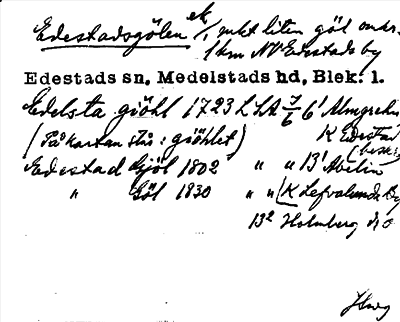 Edestadsgölen ek 1, mkt liten göl omkr.
1 km NV Edestads by
Edestads sn. Medelstads hd, Blek. l.
Edelsta giöhl 1723 LLA 7/6 6' Almgrehn
(På kartan står: giöhlet) K Edestad (beskr.
Edestad Gjöl 1802 " " B' Abelin
" Göl 1830 " " (K Lefvalunda By
13² Holmberg
Hwg